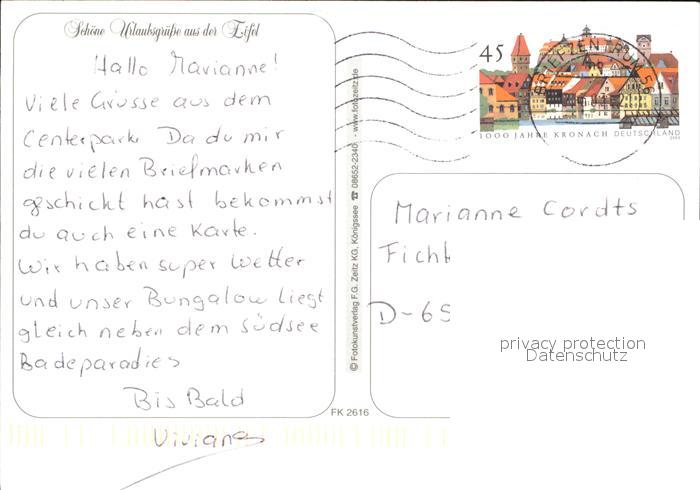 Schöne Urlaubsgrüße aus der Eifel
Hallo Marianne!
Viele Grüsse aus dem
Centerpark. Da du mir
die vielen Briefmarken
geschickt hast bekommst
du auch eine Karte.
Wir haben super Wetter
und unser Bungalow liegt
gleich neben dem Südsee
Badeparadies
Bis Bald
Viviane
© Fotokunstverlag F.G. Zeitz KG, Königssee ☎ 08652-2340 · www.fotozeitz.de
FK 2616
45
BRIEFZENTRUM 56
1000 JAHRE KRONACH DEUTSCHLAND
Marianne Cordts
Ficht
D-65
privacy protection
Datenschutz